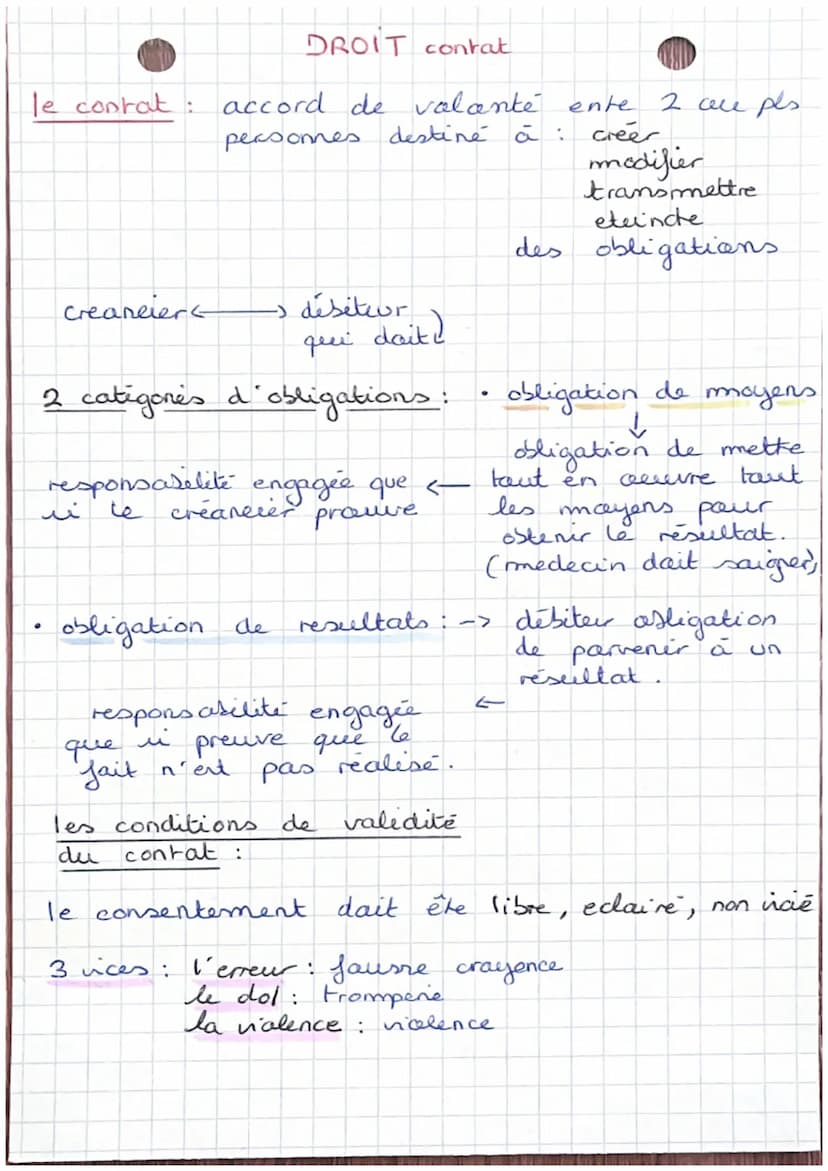 DROIT contrat
le contrat : accord de volonté entre 2 ou pls
personnes destiné à : créer
modifier
transmettre
eteindre
des obligations
creancier <-> débiteur
qui doit
2 catégories d'obligations : • obligation de moyens
↓
obligation de mettre
responsabilité engagée que ← tout en oeuvre tout
si le créancier prouve les moyens pour
obtenir le résultat.
(medecin doit soigner)
• obligation de resultats : -> débiteur obligation
de parvenir à un
résultat.
responsabilité engagée ←
que si preuve que le
fait n'est pas réalisé.
les conditions de validité
du contrat :
le consentement doit être libre, eclairé, non vicié
3 vices : l'erreur : fausse croyence
le dol : tromperie
la violence : violence